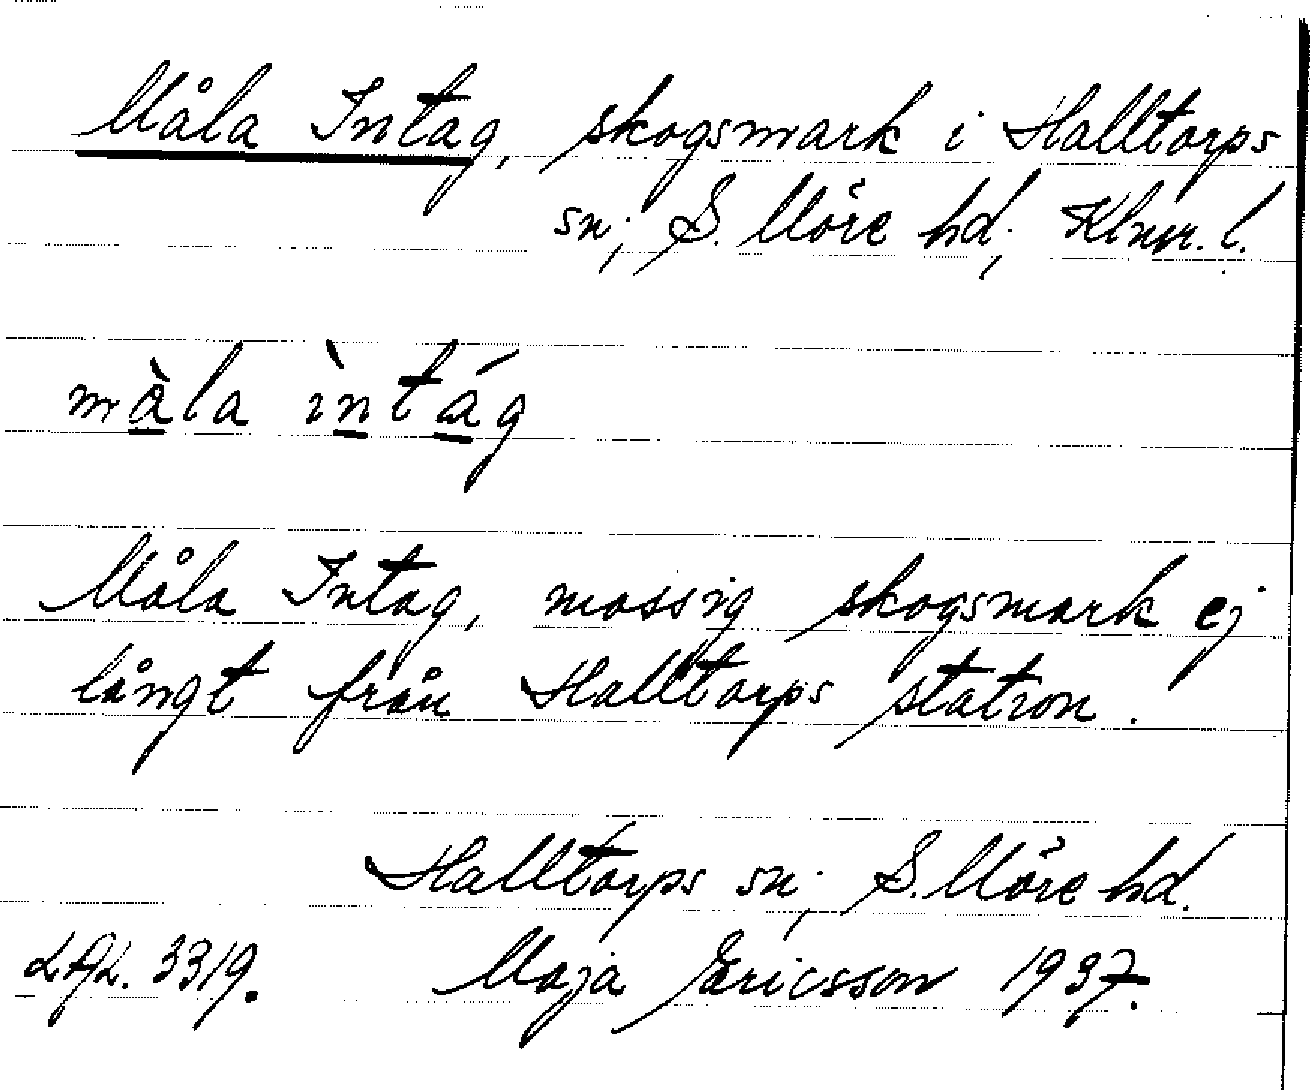 Måla Intag, skogsmark i Halltorps
sn; S. Möre hd; Klmr. l.
måla ìntág
Måla Intag, mossig skogsmark ej
långt från Halltorps station.
Halltorps sn; S. Möre hd.
3319. Maja Ericsson 1937.